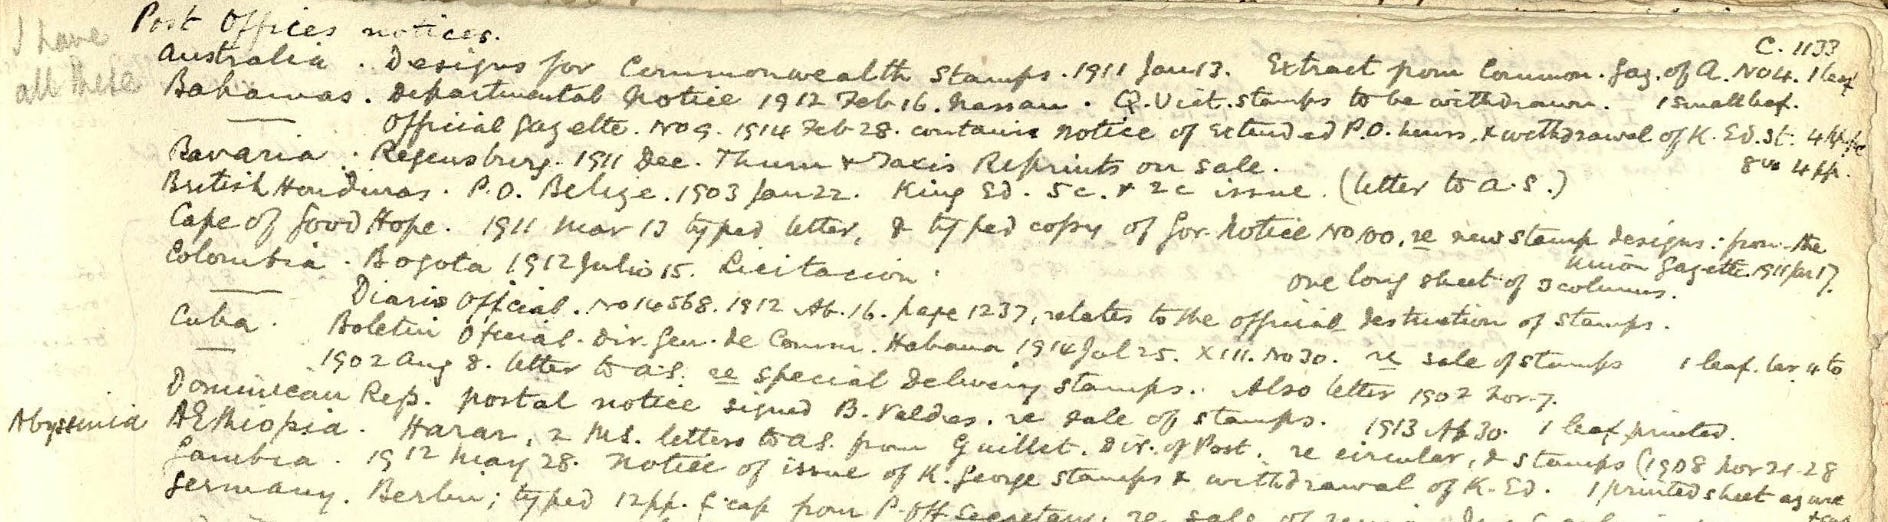 I have
all these
Post Offices notices.
C. 1133
Australia. Designs for Commonwealth Stamps. 1911 Jan 13. Extract from Common. Gaz. of A. No 4. 1 leaf
Bahamas. Departmental Notice 1912 Feb 16. Nassau. Q. Vict. stamps to be withdrawn. 1 small leaf.
— Official Gazette. No 9. 1914 Feb 28. contains notice of extended P.O. hours, & withdrawal of K. Ed. St. 4 pp.
8vo 4 pp.
Bavaria. Regensburg. 1911 Dec. Thurn & Taxis Reprints on sale.
British Honduras. P.O. Belize. 1903 Jan 22. King Ed. 5c. & 2c issue. (letter to A.S.)
Cape of Good Hope. 1911 Mar 13 typed letter, & typed copy of Gov. Notice No 100, re new stamp designs: from the
Union Gazette 1911 Jan 17.
Colombia. Bogota 1912 Julio 15. Licitacion. one long sheet of 3 columns.
— Diario Official. No 14568. 1912 Ab. 16. page 1237, relates to the official destruction of stamps.
Cuba. Boletin Oficial. Dir. Gen. de Comm. Habana 1914 Jul 25. XIII. No 30. re sale of stamps 1 leaf. lar 4to
— 1902 Aug 8. letter to A.S. re special delivery stamps. Also letter 1902 Nov. 7.
Dominican Rep. postal notice signed B. Valdes. re sale of stamps. 1913 Ap 30. 1 leaf printed.
Abyssinia AEthiopia. Harar, 2 MS. letters to A.S. from Guillet. Dir. of Post. re circular, & stamps (1908 Nov 21-28
Gambia. 1912 May 28. Notice of issue of K. George stamps & withdrawal of K. Ed. 1 printed sheet
Germany. Berlin; typed 12pp. fcap from P. Off Secretary. re sale of